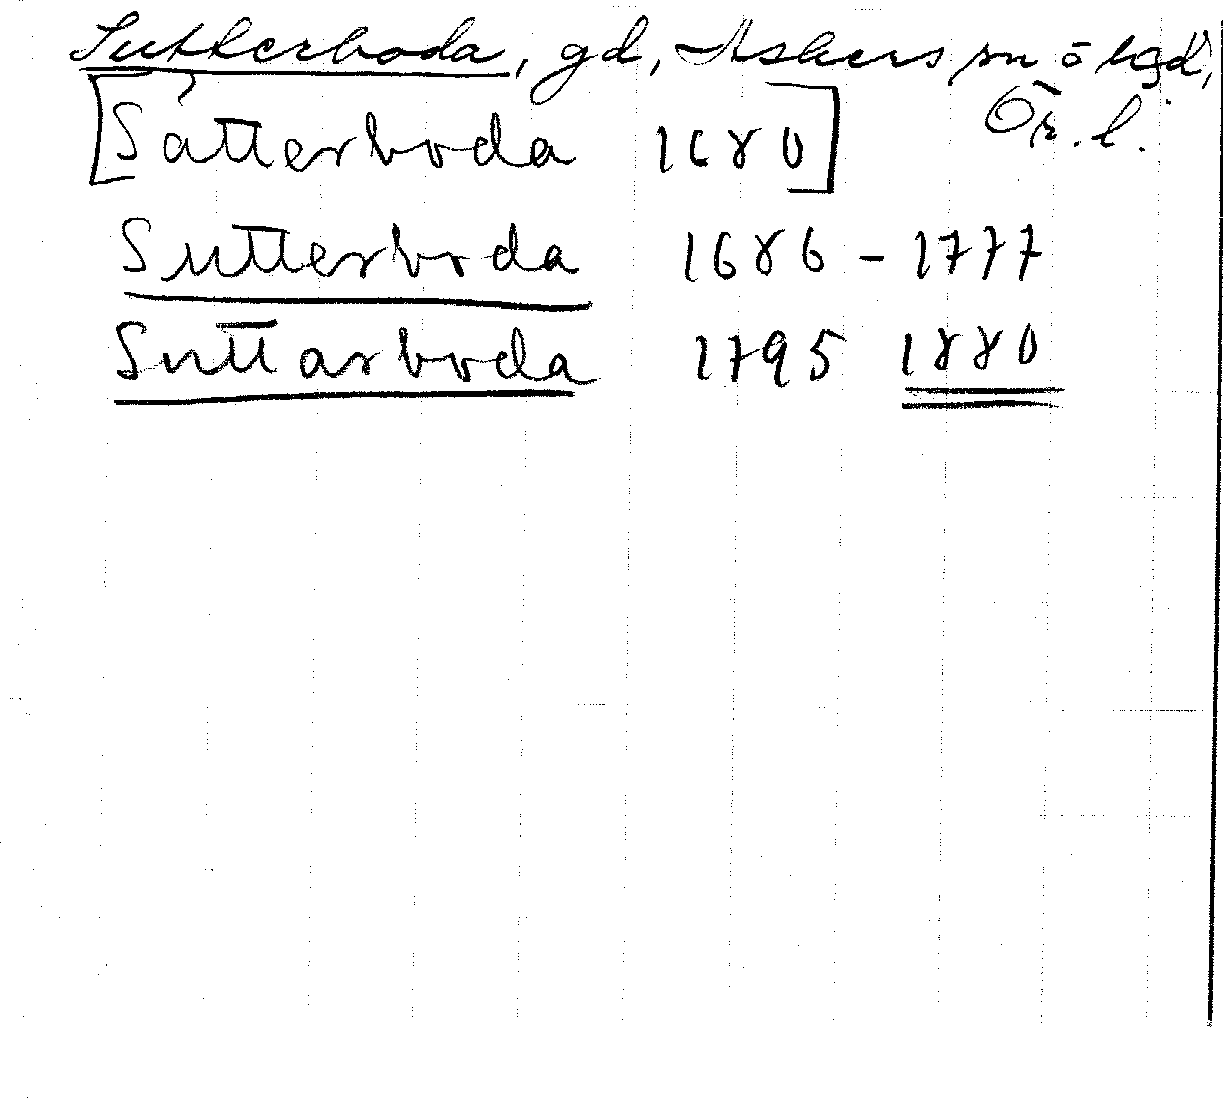 Sutterboda, gd, Askers sn o hgd,
Ör. l.
[Såtterboda 1680]
Sutterboda 1686 - 1777
Suttarboda 1795 1880